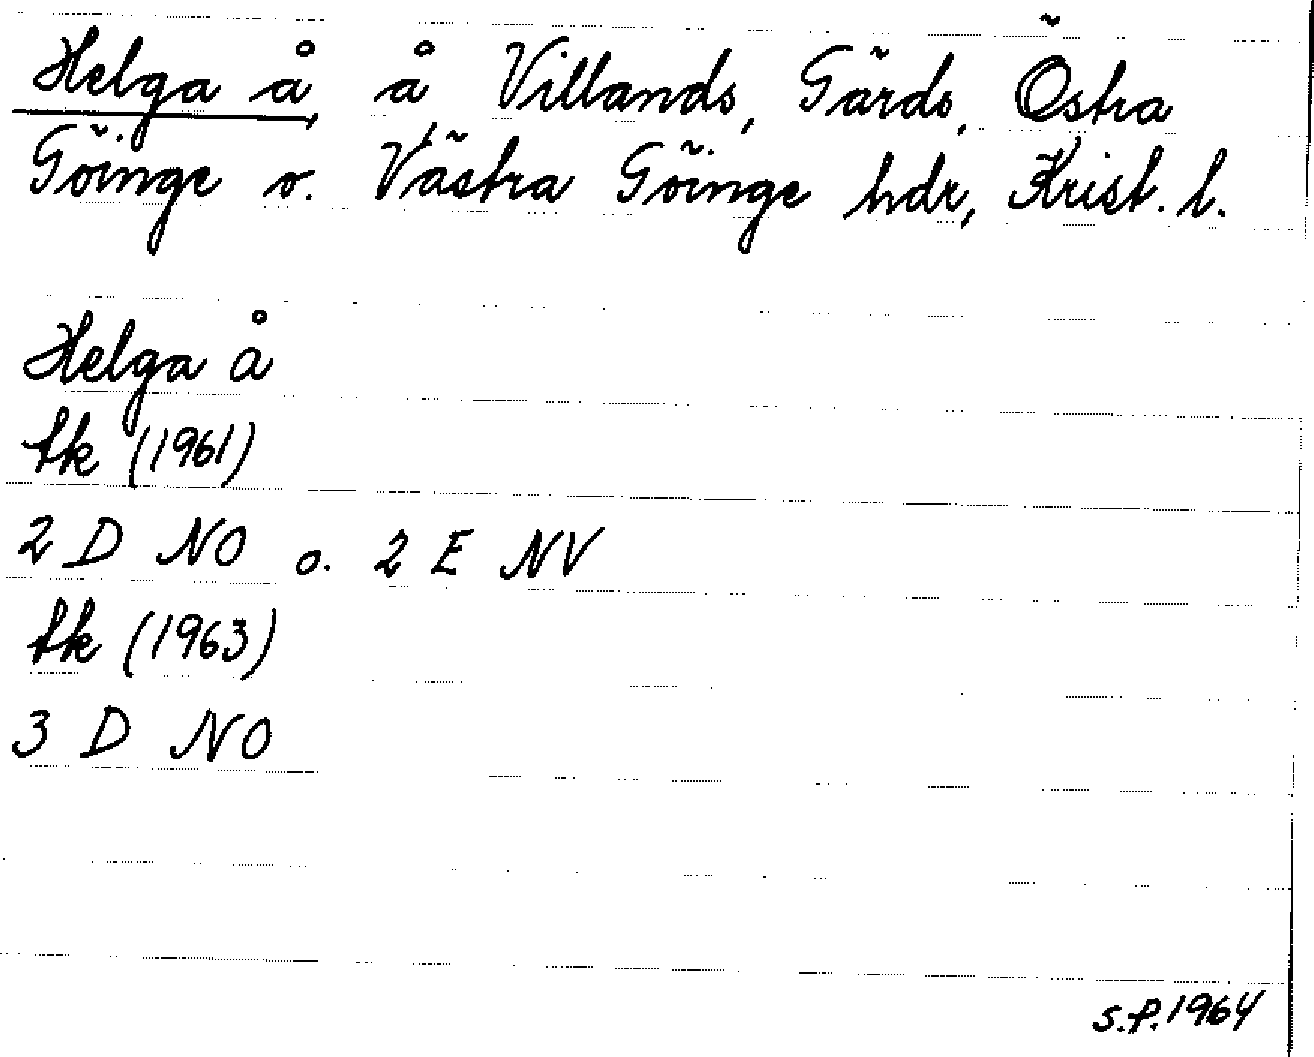 Helga å, å Villands, Gärds, Östra
Göinge o. Västra Göinge hdr, Krist. l.
Helga å
tk (1961)
2 D NO o. 2 E NV
tk (1963)
3 D NO
S.P. 1964